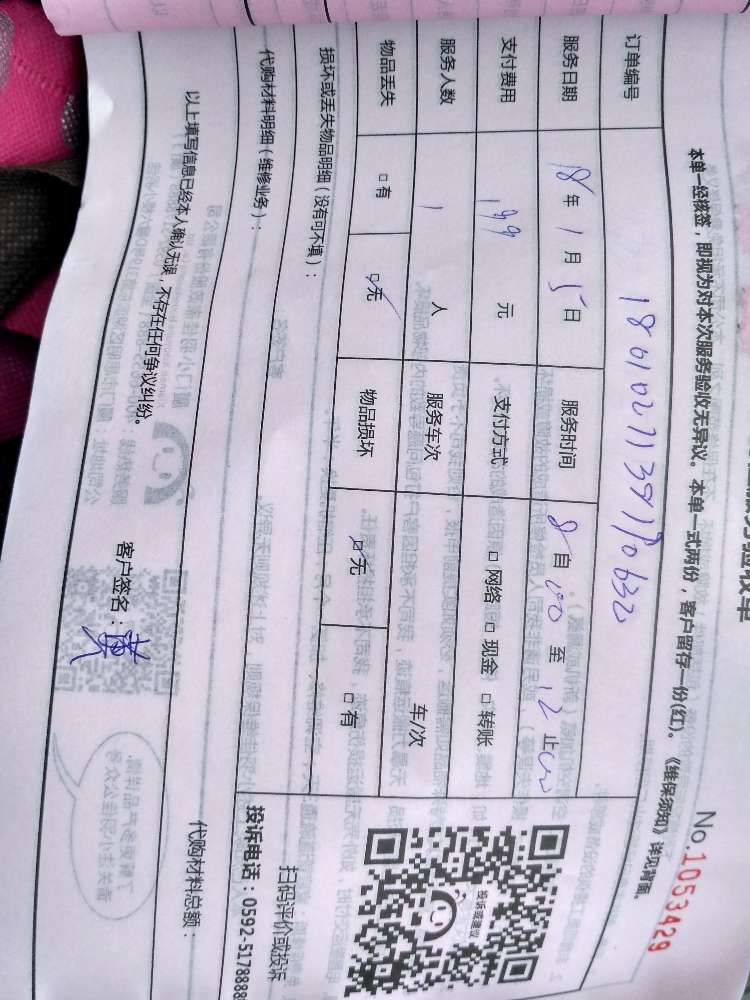 No.1053429
本单一经核签，即视为对本次服务验收无异议。本单一式两份，客户留存一份(红)。《维保须知》详见背面。
订单编号
服务日期 18年1月5日 服务时间 8自:00至12止:00
支付费用 199元 支付方式 □网络 □现金 □转账
服务人数 1人 服务车次 车/次
物品丢失 □有 ☑无 物品损坏 ☑无 □有
损坏或丢失物品明细（没有可不填）：
投诉或建议
扫码评价或投诉
投诉电话：0592-5178888
代购材料明细（维修业务）：
代购材料总额：
以上填写信息已经本人确认无误，不存在任何争议纠纷。
客户签名：黄